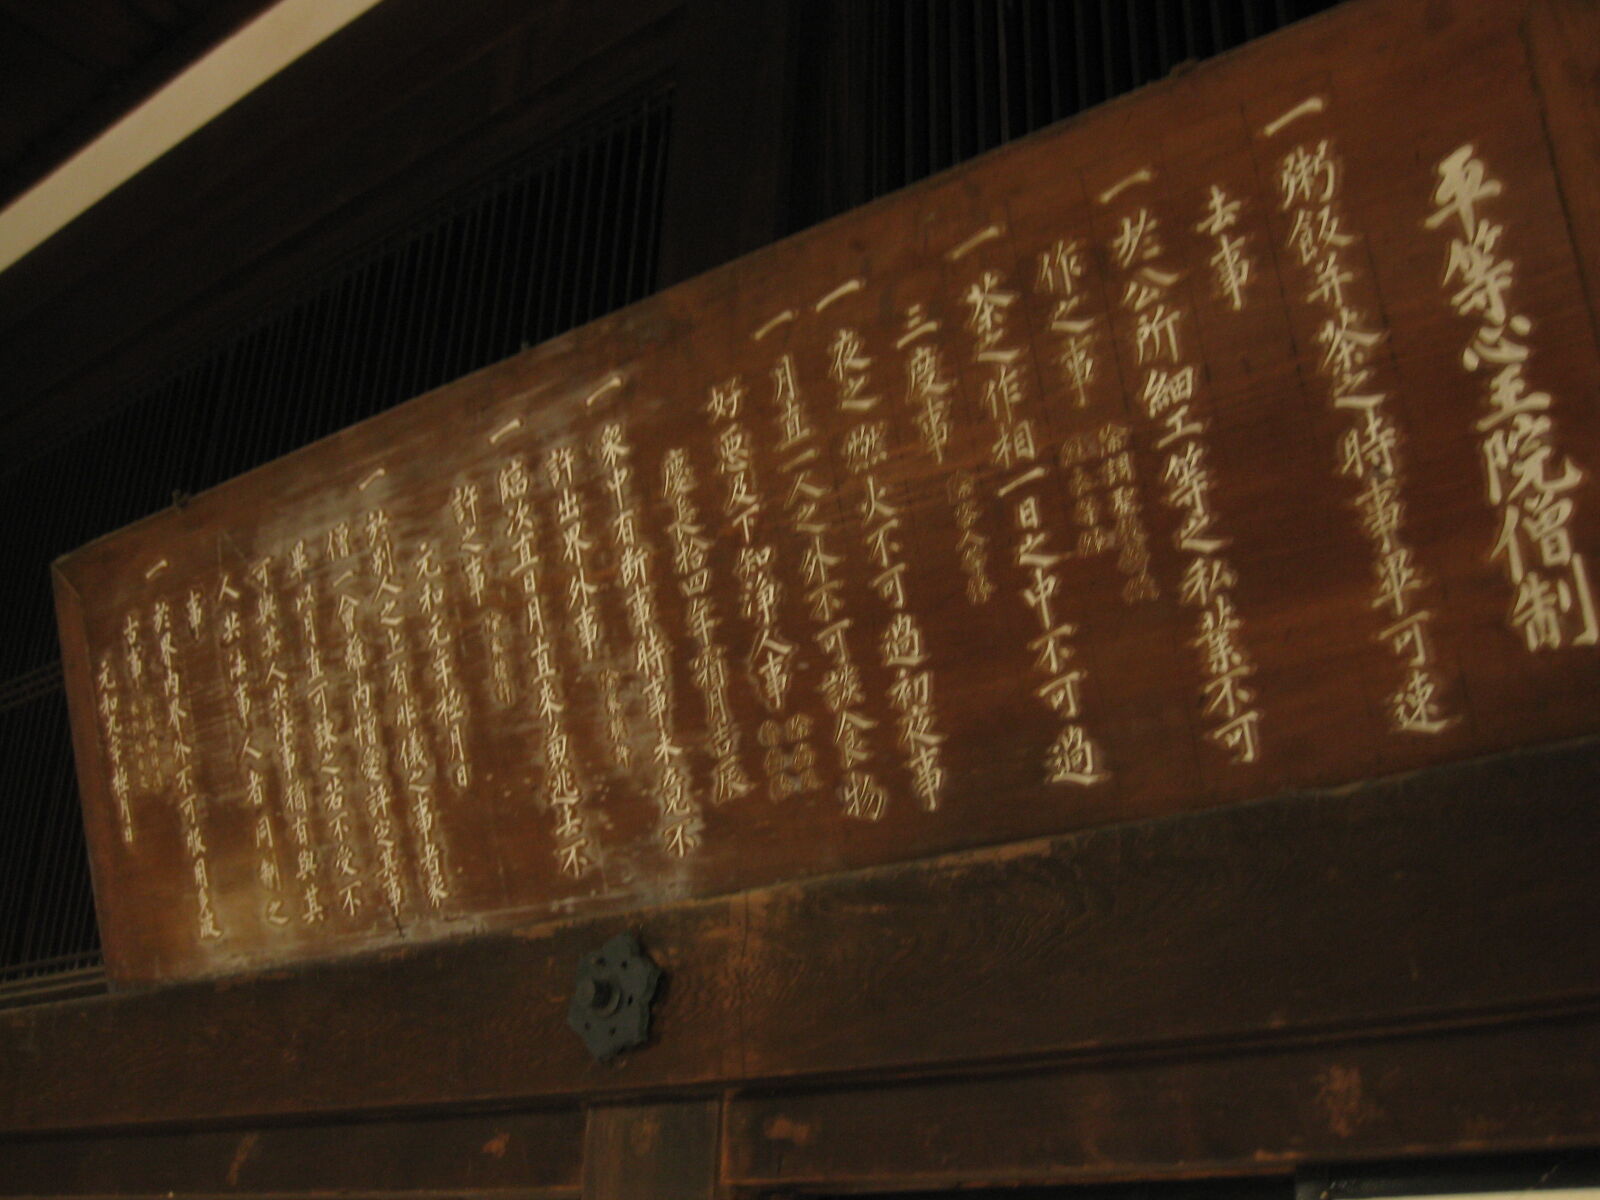 平等心王院僧制
一粥飯并茶之時事畢可速
去事
一於公所細工等之私業不可
作之事
一茶之作相一日之中不可過
三度事
一夜之燃火不可過初夜事
一月直一人之外不可談食物
好悪及下知浄人事
慶長拾四年 月吉辰
一衆中有断事時事未竟不
許出界外事
一臨次直日月直来前逃去不
許之事
元和元年極月日
一於別人之上有非儀之事者衆
僧一会離内憎愛評定其事
畢以月直可諫之若不受不
可與其人共法事稱有與其
人共法事人者同制之
事
一於界内界外不可吸用
古事
元和 年極月日